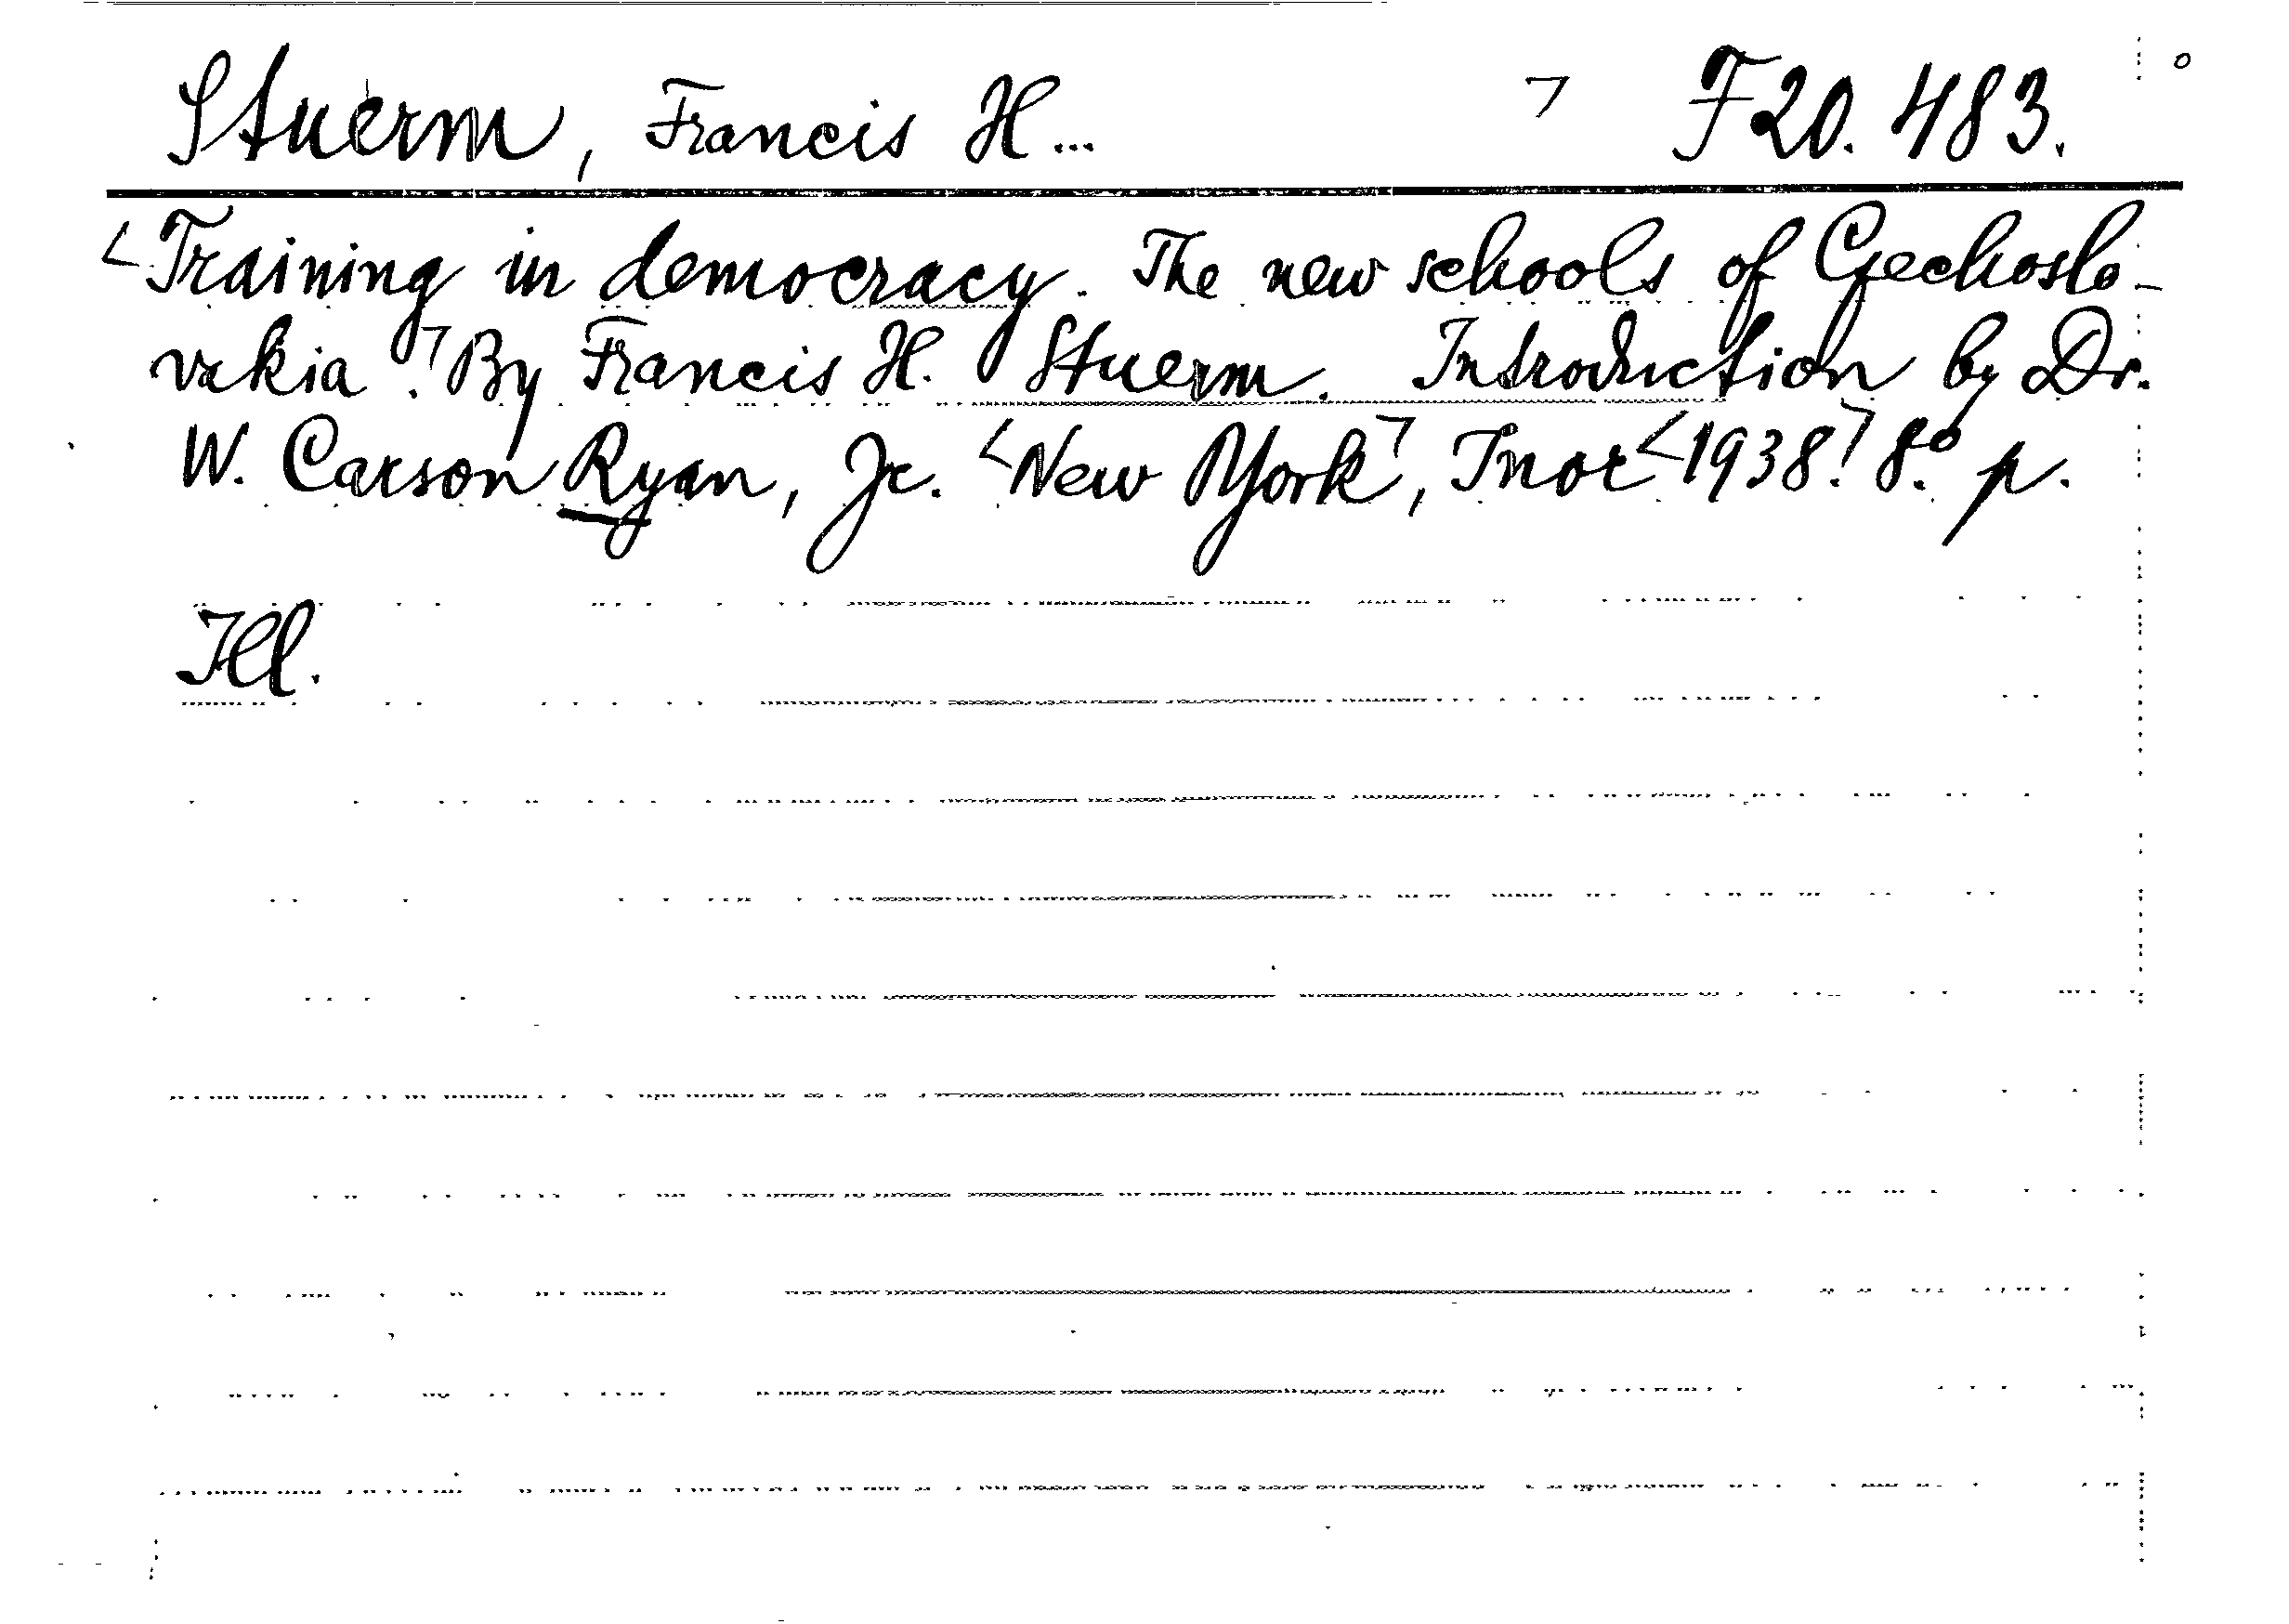 Stuerm, Francis H... ⌝ F20.483.
<Training in democracy. The new schools of Czechoslo-
vakia.⌝ By Francis H. Stuerm. Introduction by Dr.
W. Carson Ryan, Jr. <New York⌝, Inor <1938.⌝ 8.° p.
Ill.